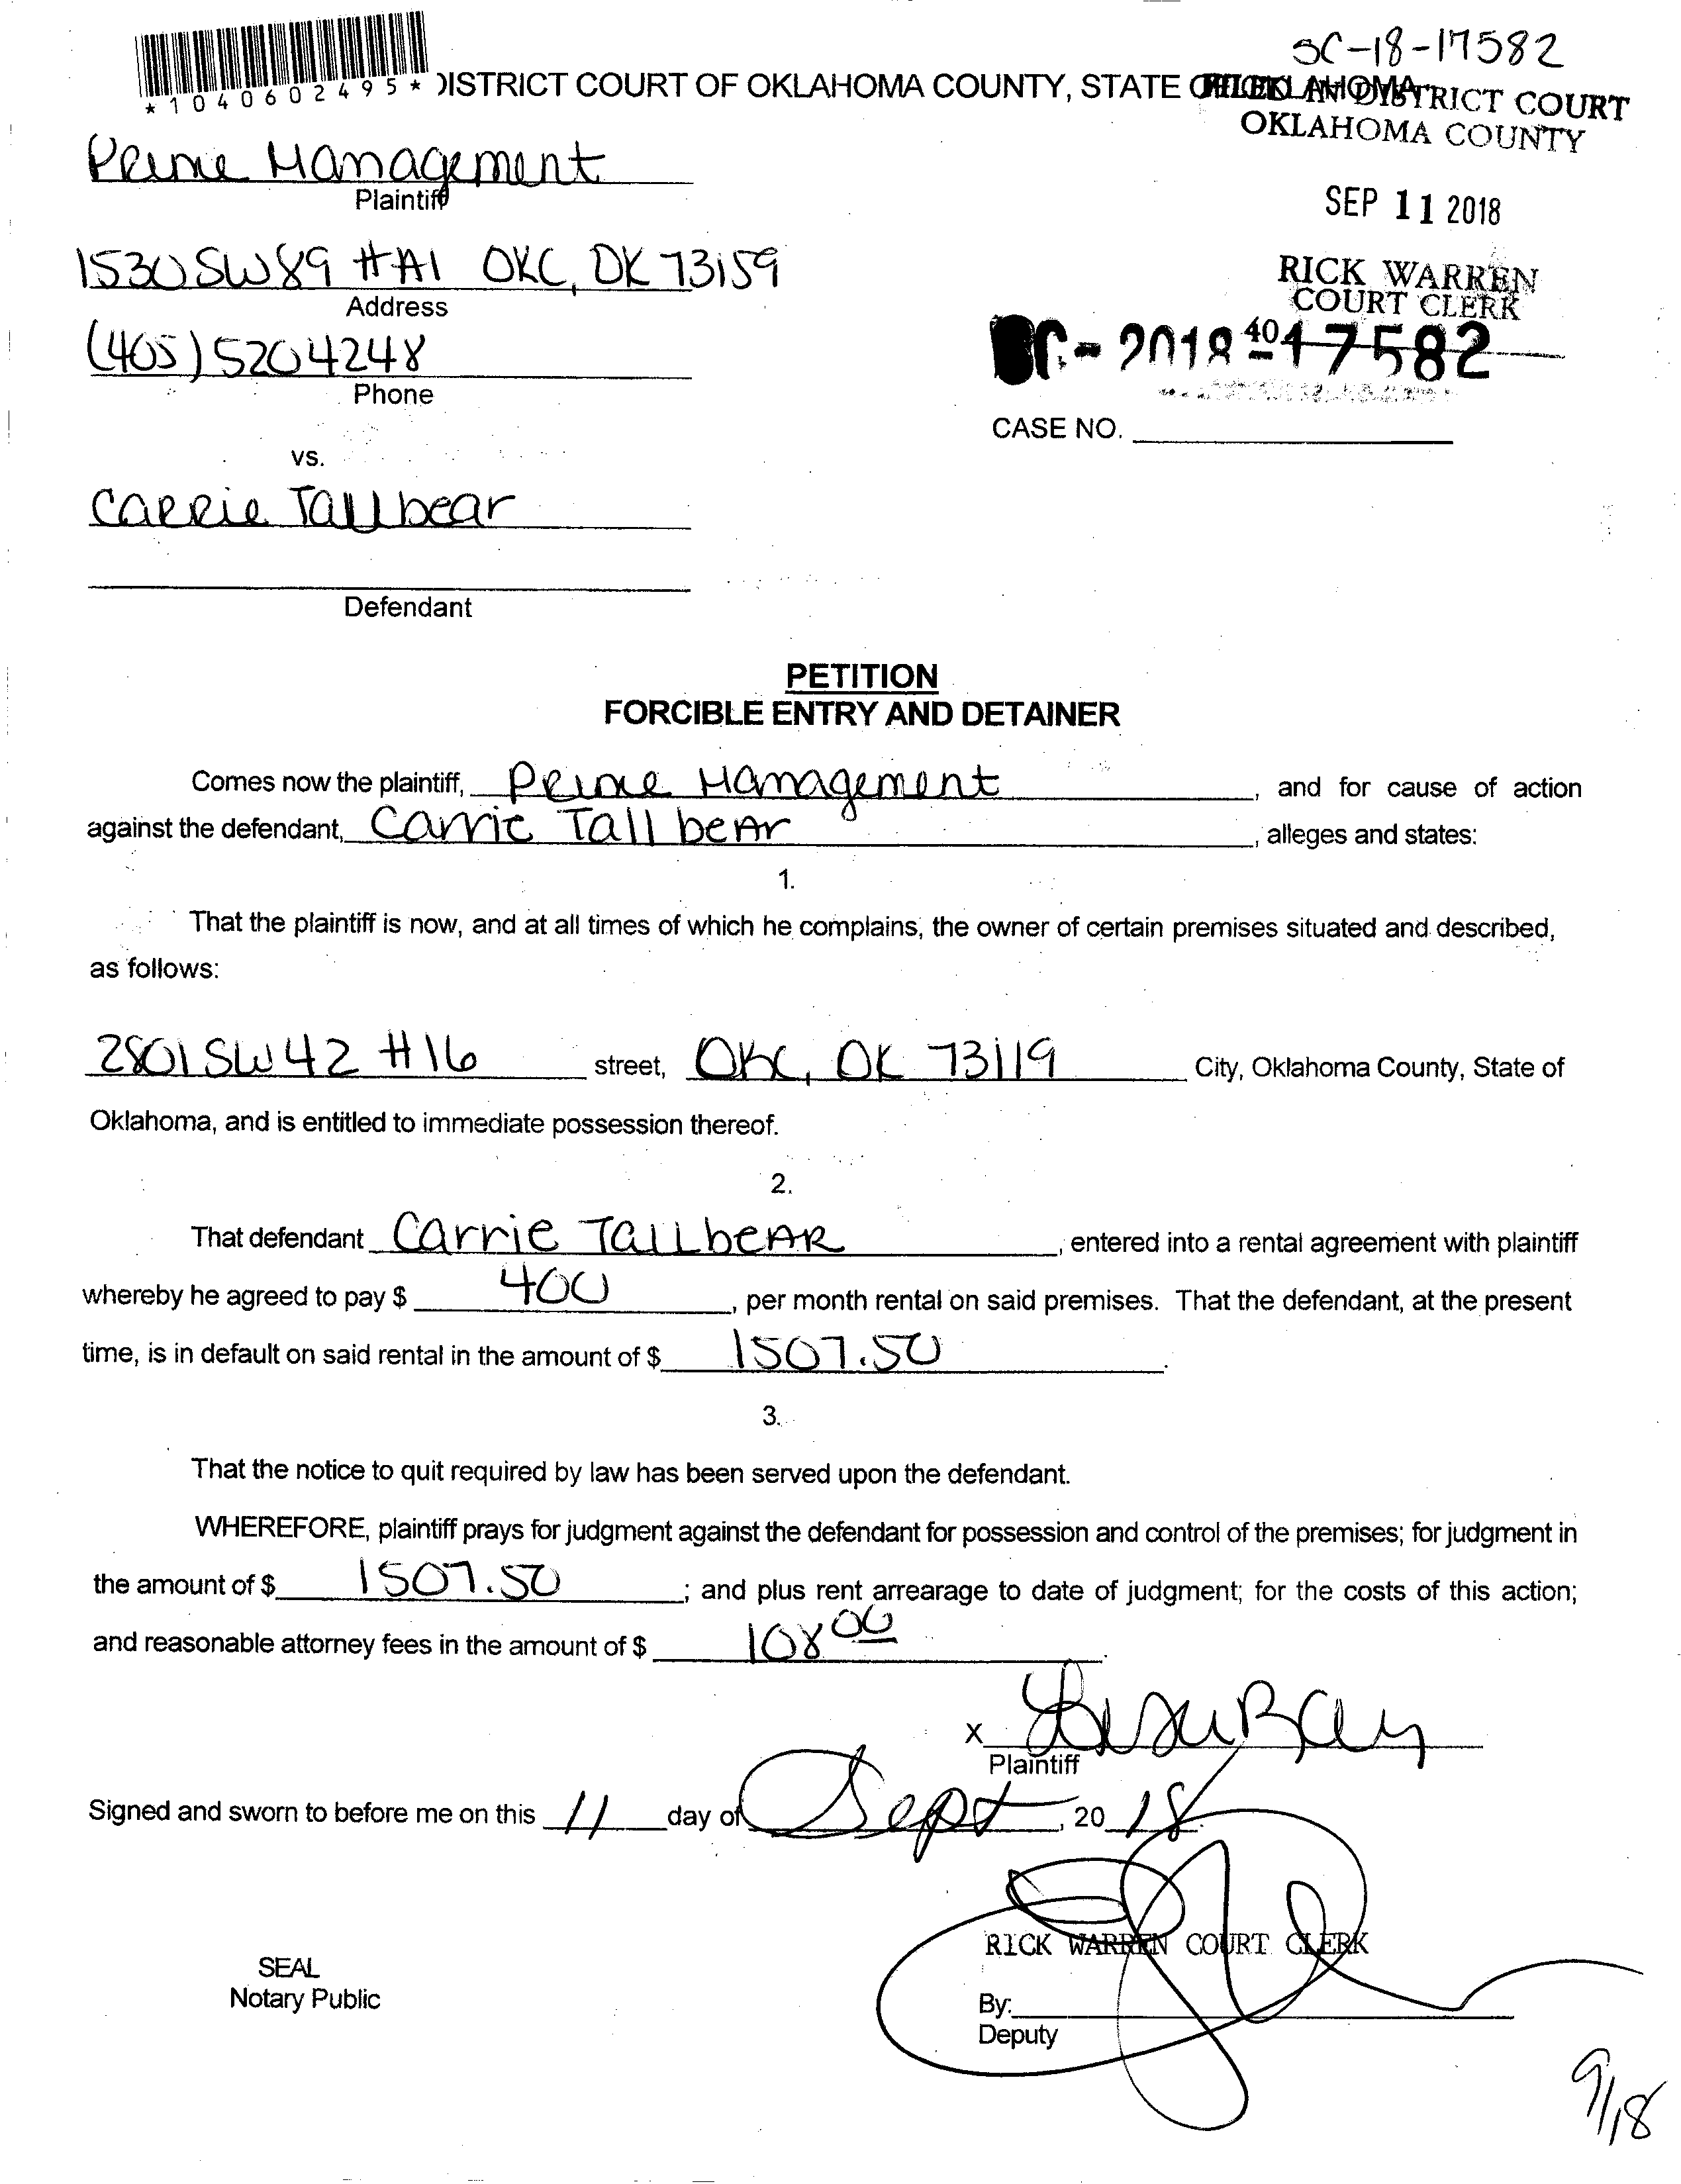 SC-18-17582
*1040602495* DISTRICT COURT OF OKLAHOMA COUNTY, STATE OF OKLAHOMA
FILED IN DISTRICT COURT
OKLAHOMA COUNTY
Prime Management
Plaintiff
SEP 11 2018
1530 SW 89 #A1 OKC, OK 73159
Address
RICK WARREN
COURT CLERK
(405) 5204248
Phone
SC-2018-17582
40
CASE NO.
vs.
Carrie Tallbear
Defendant
PETITION
FORCIBLE ENTRY AND DETAINER
Comes now the plaintiff, Prime Management, and for cause of action
against the defendant, Carrie Tallbear, alleges and states:
1.
That the plaintiff is now, and at all times of which he complains, the owner of certain premises situated and described,
as follows:
2801 SW 42 #16 street, OKC, OK 73119 City, Oklahoma County, State of
Oklahoma, and is entitled to immediate possession thereof.
2.
That defendant Carrie Tallbear, entered into a rental agreement with plaintiff
whereby he agreed to pay $ 400, per month rental on said premises. That the defendant, at the present
time, is in default on said rental in the amount of $ 1507.50.
3.
That the notice to quit required by law has been served upon the defendant.
WHEREFORE, plaintiff prays for judgment against the defendant for possession and control of the premises; for judgment in
the amount of $ 1507.50; and plus rent arrearage to date of judgment; for the costs of this action;
and reasonable attorney fees in the amount of $ 108 00.
X
Plaintiff
Signed and sworn to before me on this 11 day of Sept, 20 18.
RICK WARREN COURT CLERK
SEAL
Notary Public
By:
Deputy
9/18